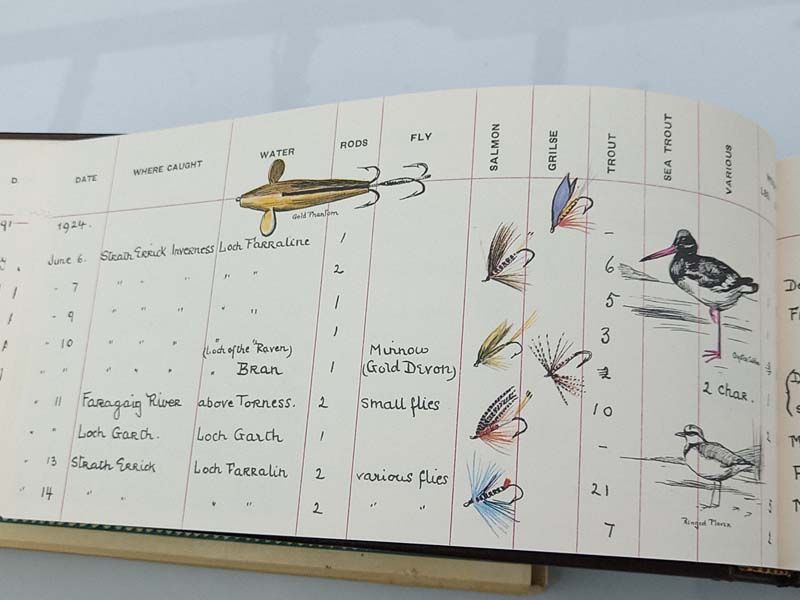 D. DATE WHERE CAUGHT WATER RODS FLY SALMON GRILSE TROUT SEA TROUT VARIOUS
LBS.
1924.
Gold Phantom
June 6. Strath Errick Inverness Loch Farraline 1 -
" 7 " " " " " 2 6
" 9 " " " " " 1 5
" 10 " " " " " 1 3
(Loch of the "Raven) Minnow
" " " " " " Bran 1 (Gold Devon) 2
Oyster Catcher
2 char.
" 11 Faragaig River above Torness. 2 small flies 10
" " Loch Garth. Loch Garth 1 -
" 13 Strath Errick Loch Farralin 2 various flies 21
" 14 " " " " 2 " " 7
Ringed Plover